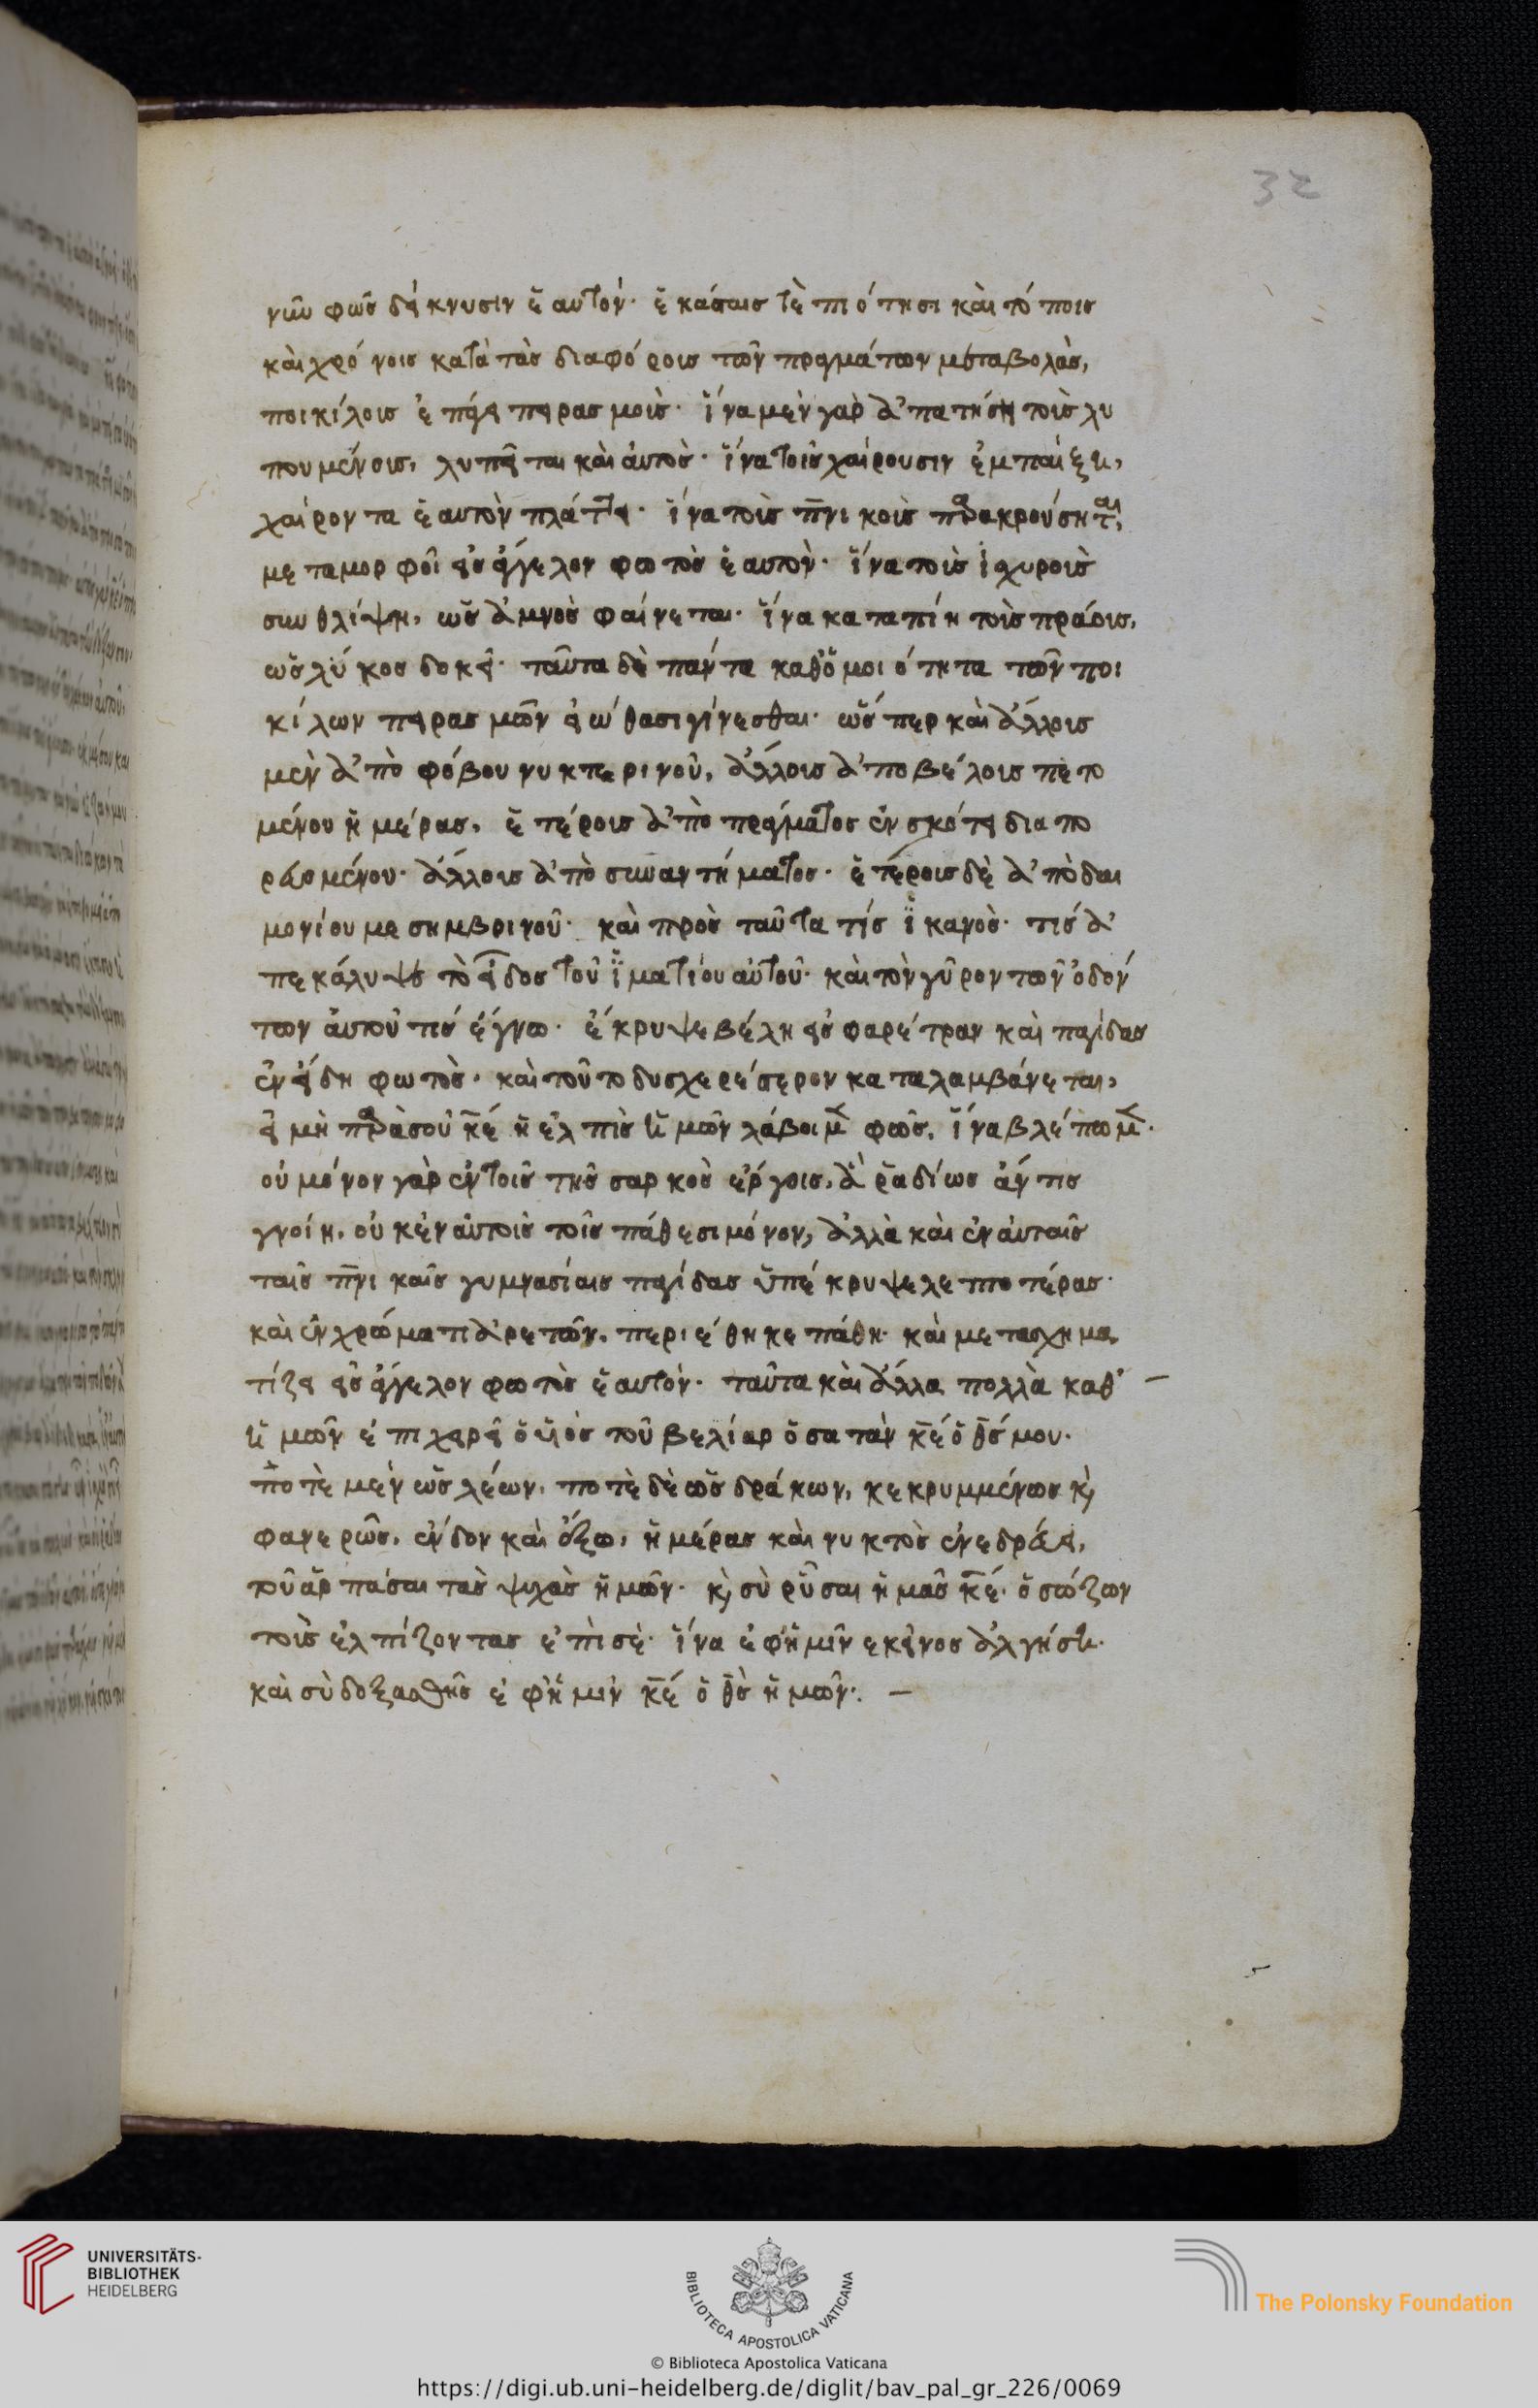 32
νῦν φῶς δείκνυσιν ἑαυτόν· ἑκάσταις τὲ ποιότησι καὶ τόποις
καὶ χρόνοις κατὰ τὰς διαφόροις τῶν πραγμάτων μεταβολὰς,
ποικίλοις ἐπάγει πειρασμοὺς· ἵνα μὲν γὰρ ἀπατήσῃ τοὺς λυ
πουμένοις, λυπεῖται καὶ ἀυτὸς· ἵνα τοῖς χαίρουσιν ἐμπαίξει,
χαίροντα ἑαυτὸν πλάττει· ἵνα τοὺς πν̅ικοὺς παρακρούσηται,
μεταμορφοῖ εἰς ἄγγελον φωτὸς ἑαυτὸν· ἵνα τοὺς ἰσχυροὺς
συνθλίψη, ὡς ἀμνὸς φαίνεται· ἵνα καταπίη τοὺς πράοις,
ὡς λύκος δοκεῖ· ταῦτα δὲ πάντα καθομοιότητα τῶν ποι
κίλων πειρασμῶν εἰώθασι γίνεσθαι· ὥσπερ καὶ ἄλλοις
μὲν ἀπὸ φόβου νυκτερινοῦ, ἄλλοις ἀπο βέλοις πετο
μένου ἡμέρας, ἑτέροις ἀπὸ πράγματος ἐν σκότει διαπο
ρευομένου· ἄλλοις ἀπὸ συναντήματος· ἑτέροις δὲ ἀπὸ δαι
μονίου μεσημβρινοῦ· καὶ πρὸς ταῦτα τίς ἱκανὸς· τίς ἀ
πεκάλυψε τὸ εἶδος τοῦ ἱματίου αὐτοῦ· καὶ τὸν γῦρον τῶν ὀδόν
των ἀυτοῦ τίς ἔγνω· ἔκρυψε βέλη εἰς φαρέτραν καὶ παγίδας
ἐν εἴδη φωτὸς· καὶ τοῦτο δυσχερέστερον καταλαμβάνεται,
εἰ μὴ παρὰ σοῦ κ̅ε ἡ ἐλπὶς ἡμῶν λάβοιμεν φῶς, ἵνα βλέπωμεν·
οὐ μόνον γὰρ ἐν τοῖς τῆς σαρκὸς ἔργοις, ἃ ῥαδίως ἄν τις
γνοίη, οὐκ ἐν αὐτοῖς τοῖς πάθεσι μόνον, ἀλλὰ καὶ ἐν ἀυταῖς
ταῖς πν̅ικαῖς γυμνασίαις παγίδας ὑπέκρυψε λεπτοτέρας·
καὶ ἐν χρώματι ἀρετῶν, περιέθηκε πάθη· καὶ μετασχημα
τίζει εἰς ἄγγελον φωτὸς ἑαυτόν· ταῦτα καὶ ἄλλα πολλὰ καθ’ —
ἡμῶν ἐπιχειρεῖ ὁ υἱὸς τοῦ βελίαρ ὁ σατὰν κ̅ε ὁ θ̅ς μου·
ποτὲ μὲν ὡς λέων, ποτὲ δὲ ὡς δράκων, κεκρυμμένως κ̀
φανερῶς, ἔνδον καὶ ἔξω, ἡμέρας καὶ νυκτὸς ἐνεδρεύει,
τοῦ ἁρπάσαι τὰς ψυχὰς ἡμῶν· κ̀ σὺ ῥῦσαι ἡμᾶς κ̅ε· ὁ σώζων
τοὺς ἐλπίζοντας ἐπὶ σὲ· ἵνα ἐφ’ ἡμῖν ἐκεῖνος ἀλγήσει·
καὶ σὺ δοξασθῆς ἐφ’ ἡμῖν κ̅ε ὁ θ̅ς ἡμῶν·. —
UNIVERSITÄTS-
BIBLIOTHEK
HEIDELBERG
BIBLIOTECA APOSTOLICA VATICANA
The Polonsky Foundation
© Biblioteca Apostolica Vaticana
https://digi.ub.uni-heidelberg.de/diglit/bav_pal_gr_226/0069